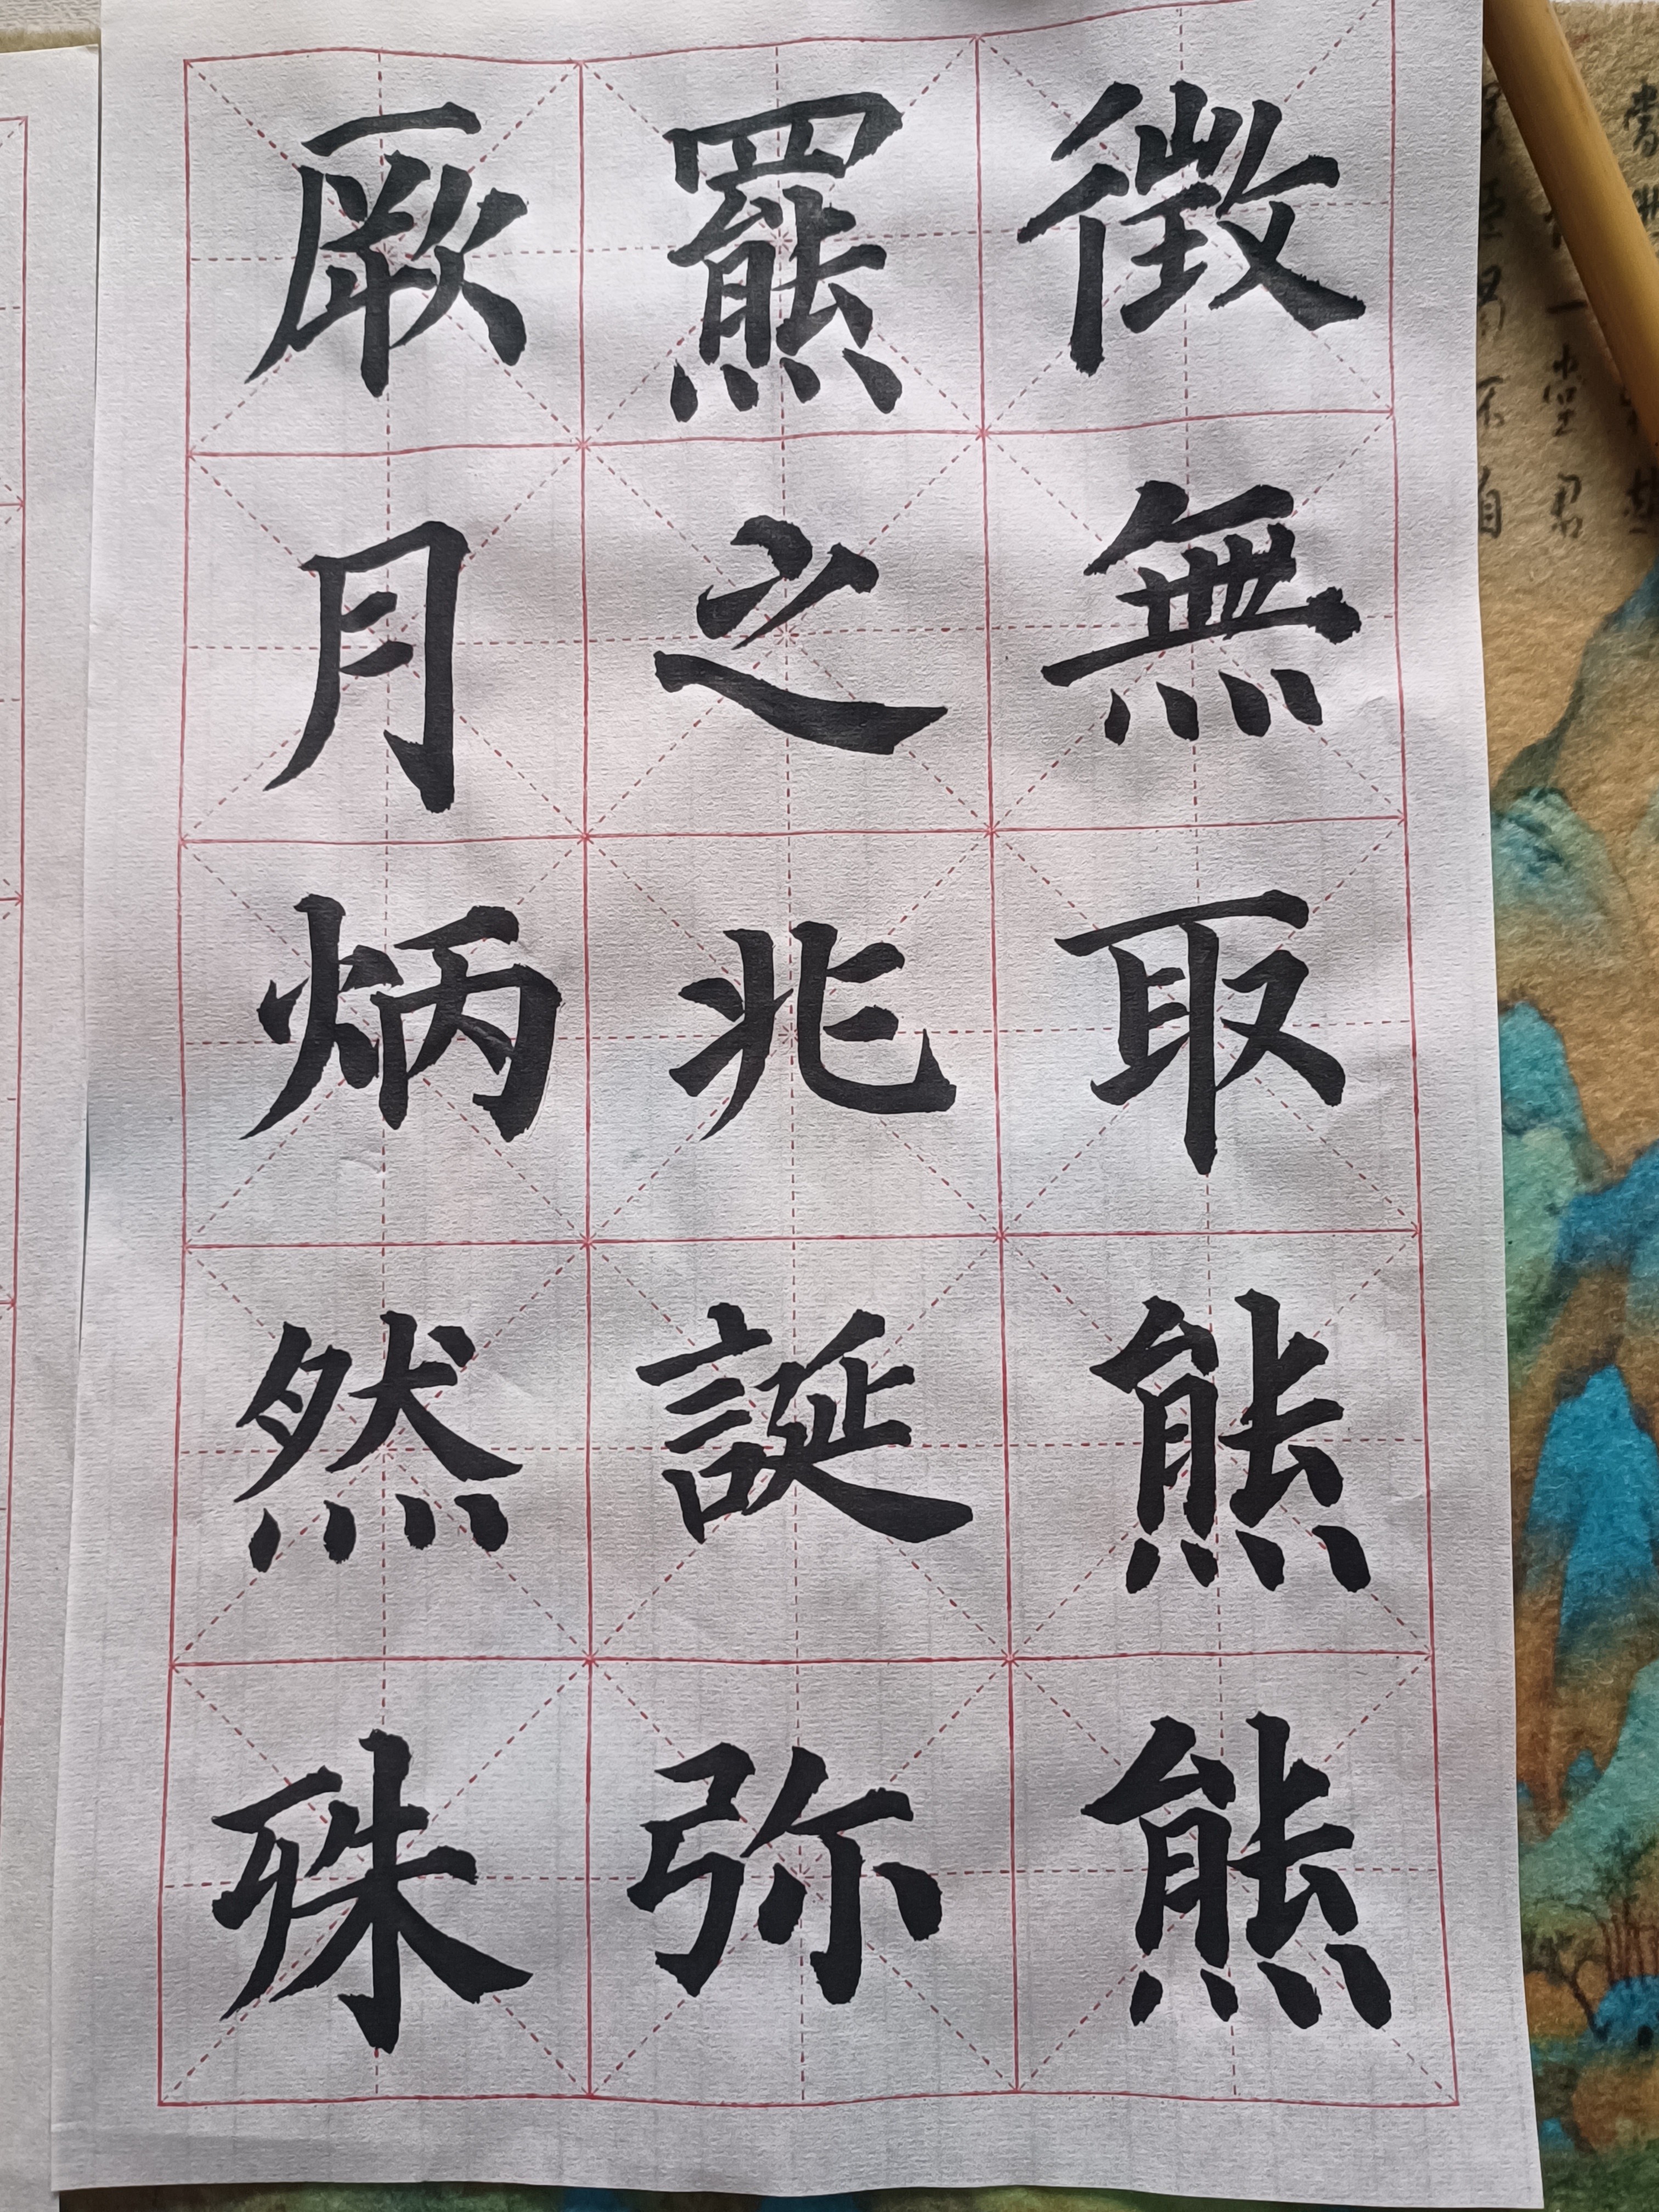 徴無取熊熊
羆之兆誕弥
厥月炳然殊